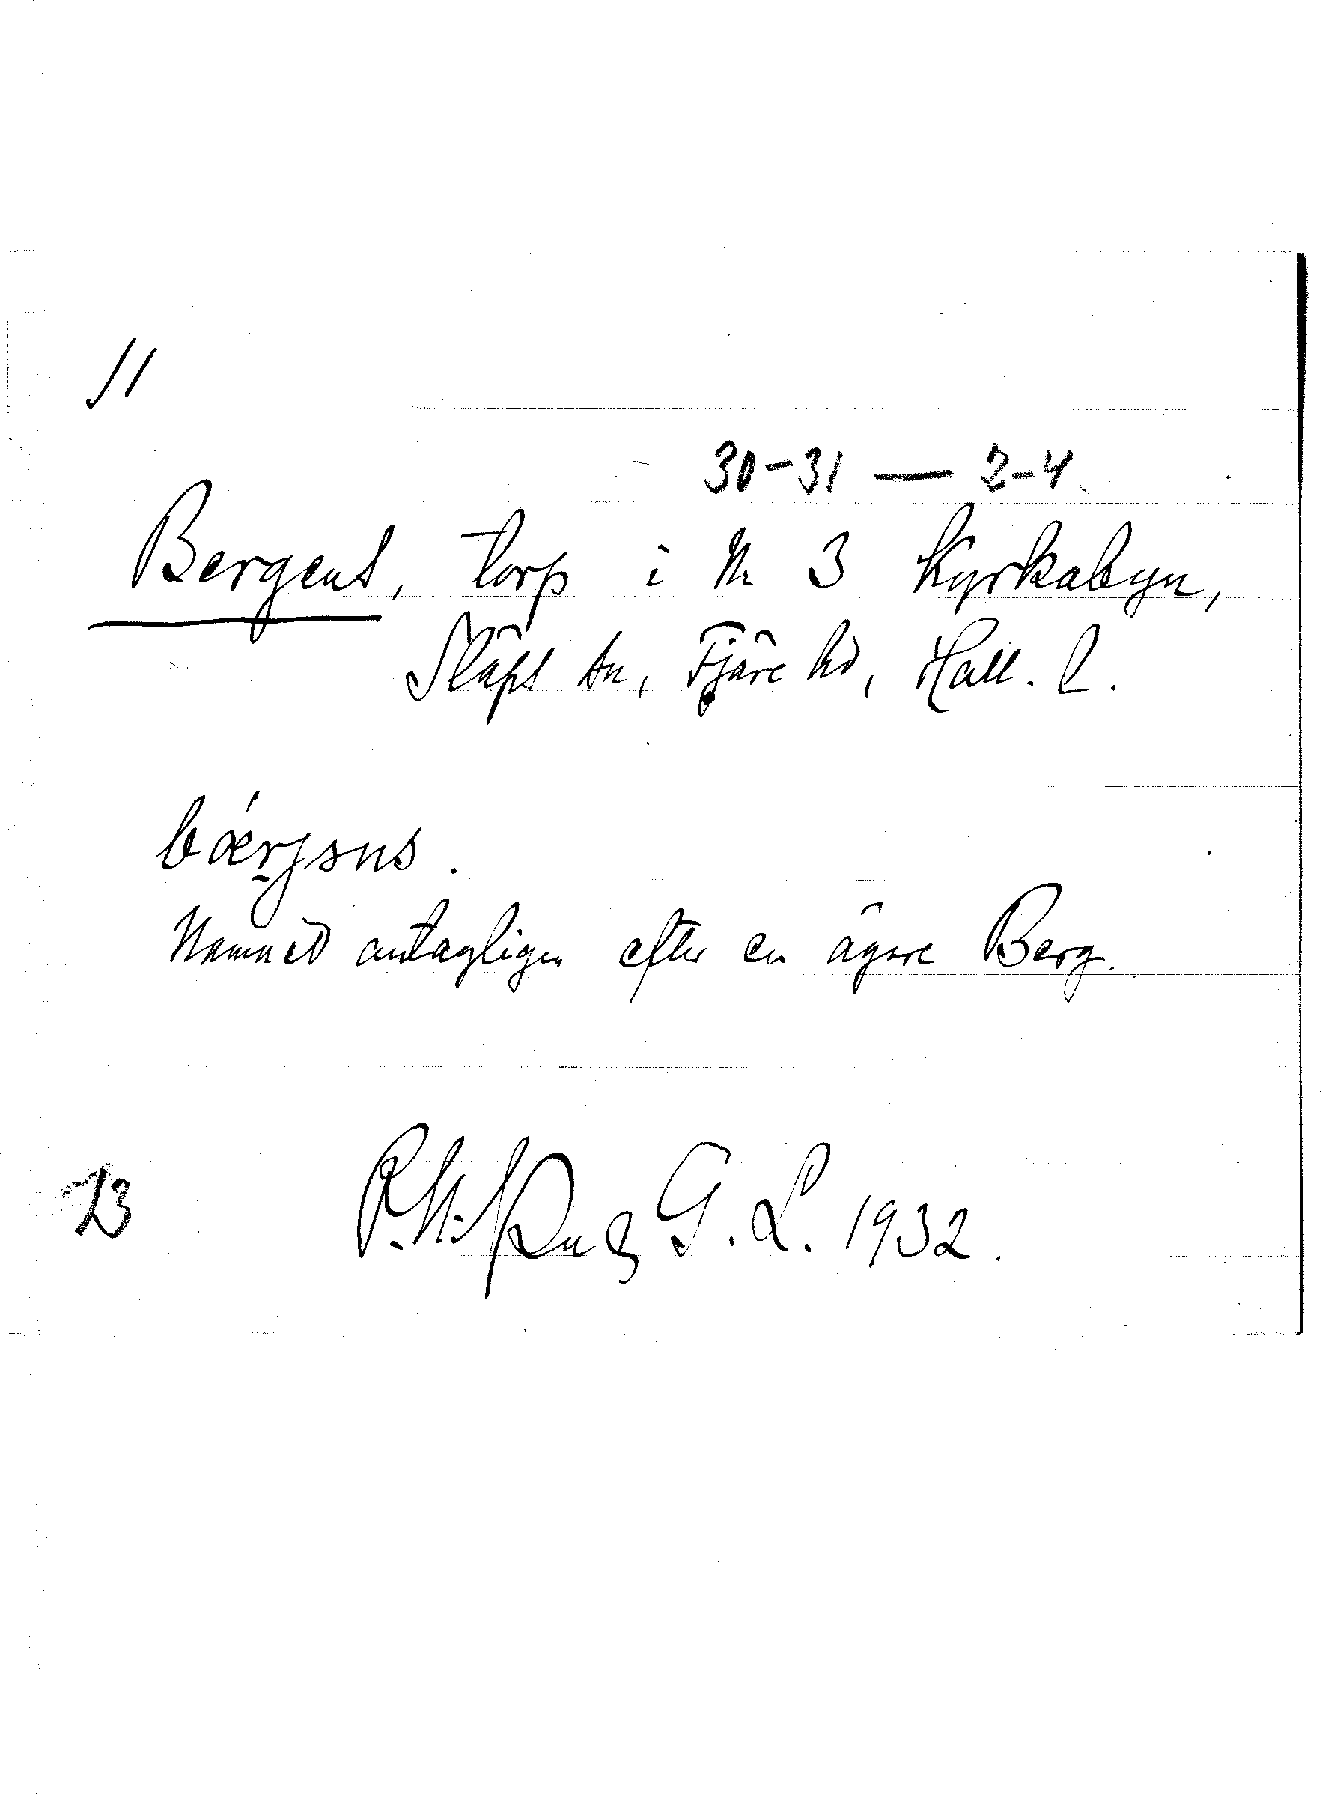 11
30-31 — 2-4.
Bergens, torp i Nr 3 Kyrkabyn,
Släps sn, Fjäre hd, Hall. l.
bǽrjəns.
Namnet antagligen efter en ägare Berg.
23 G. L. 1932.